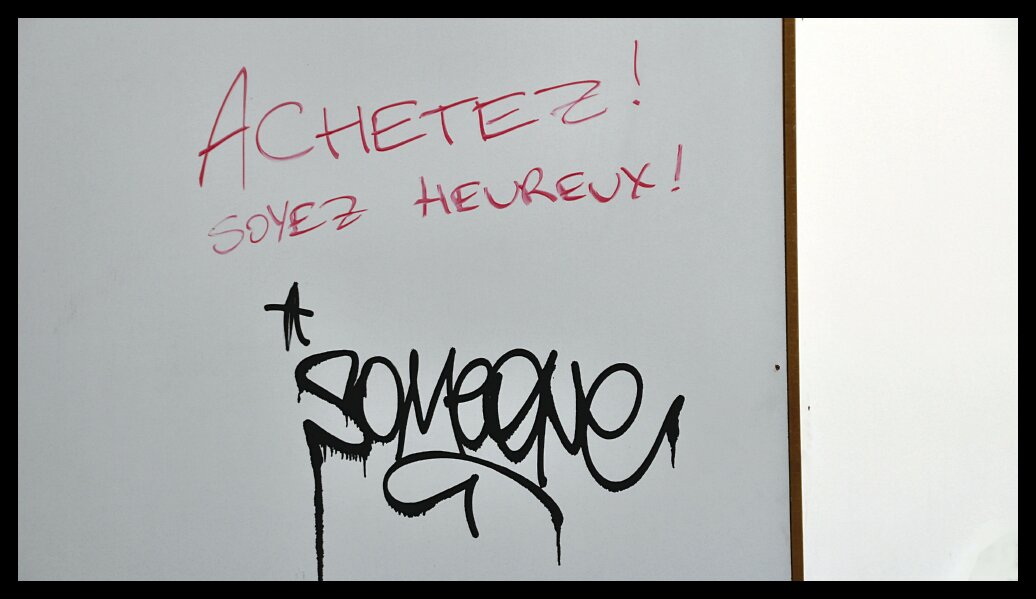 ACHETEZ!
SOYEZ HEUREUX!
someone